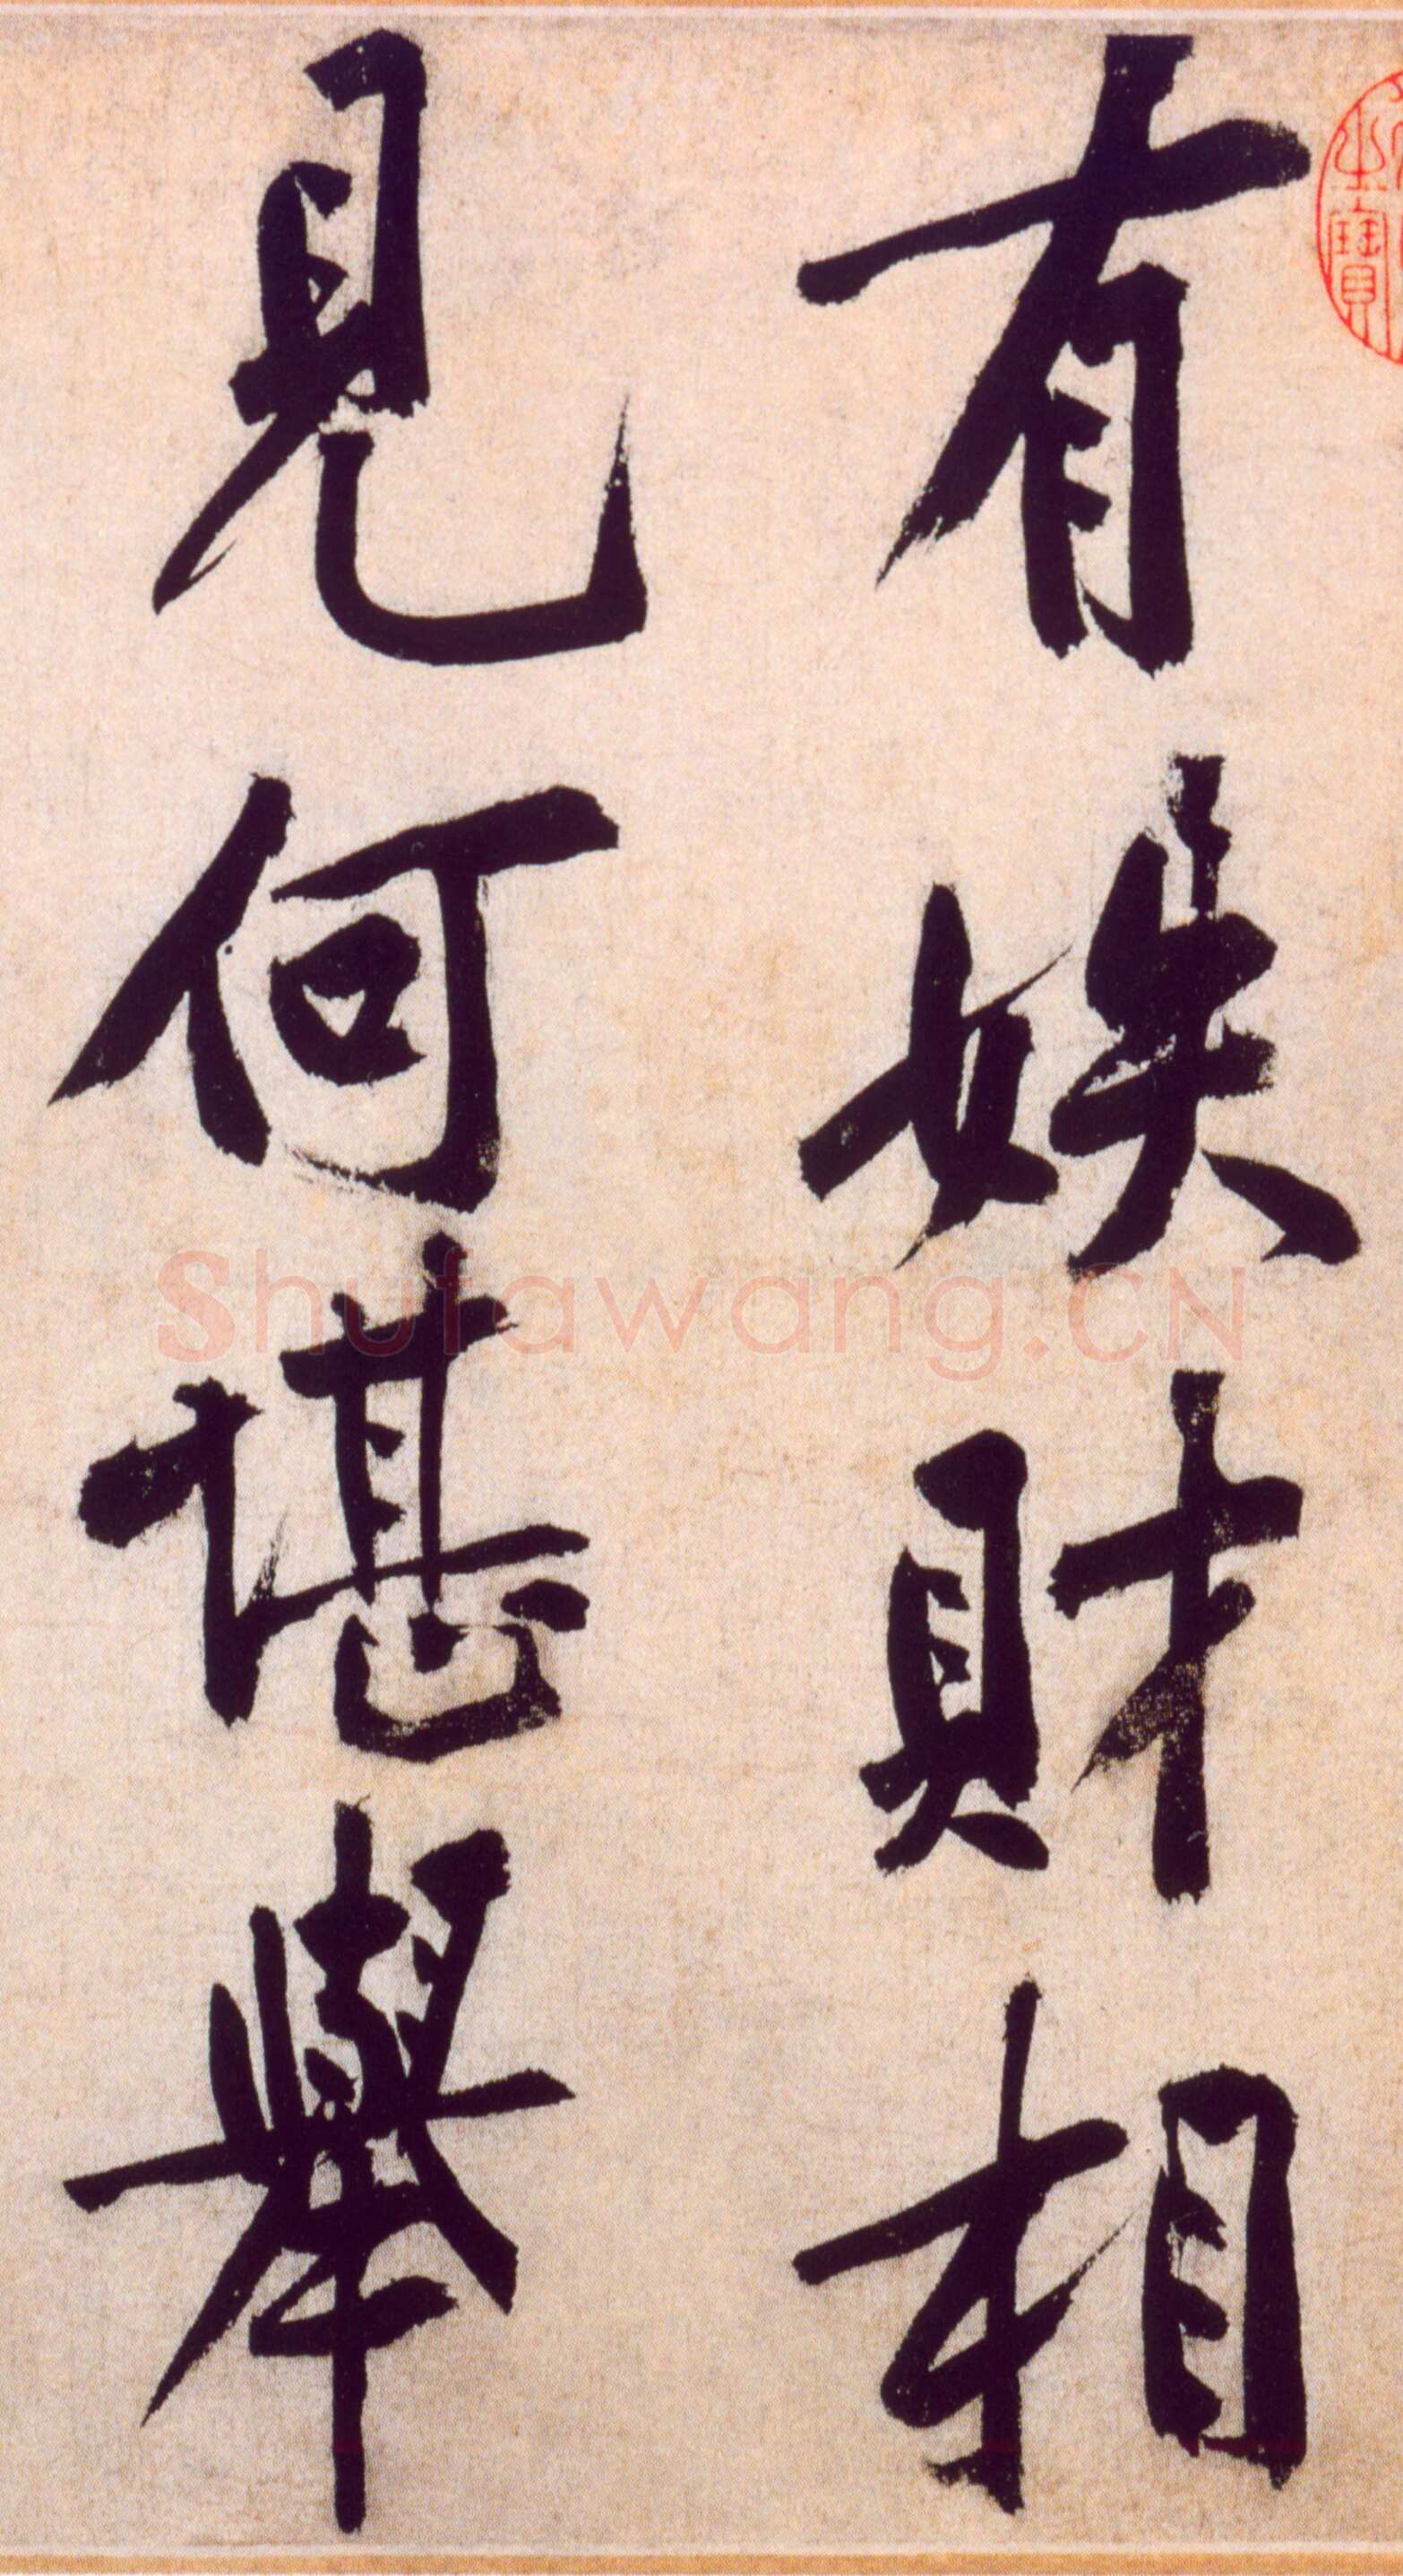 有財相
見何堪舉
Shufawang.CN